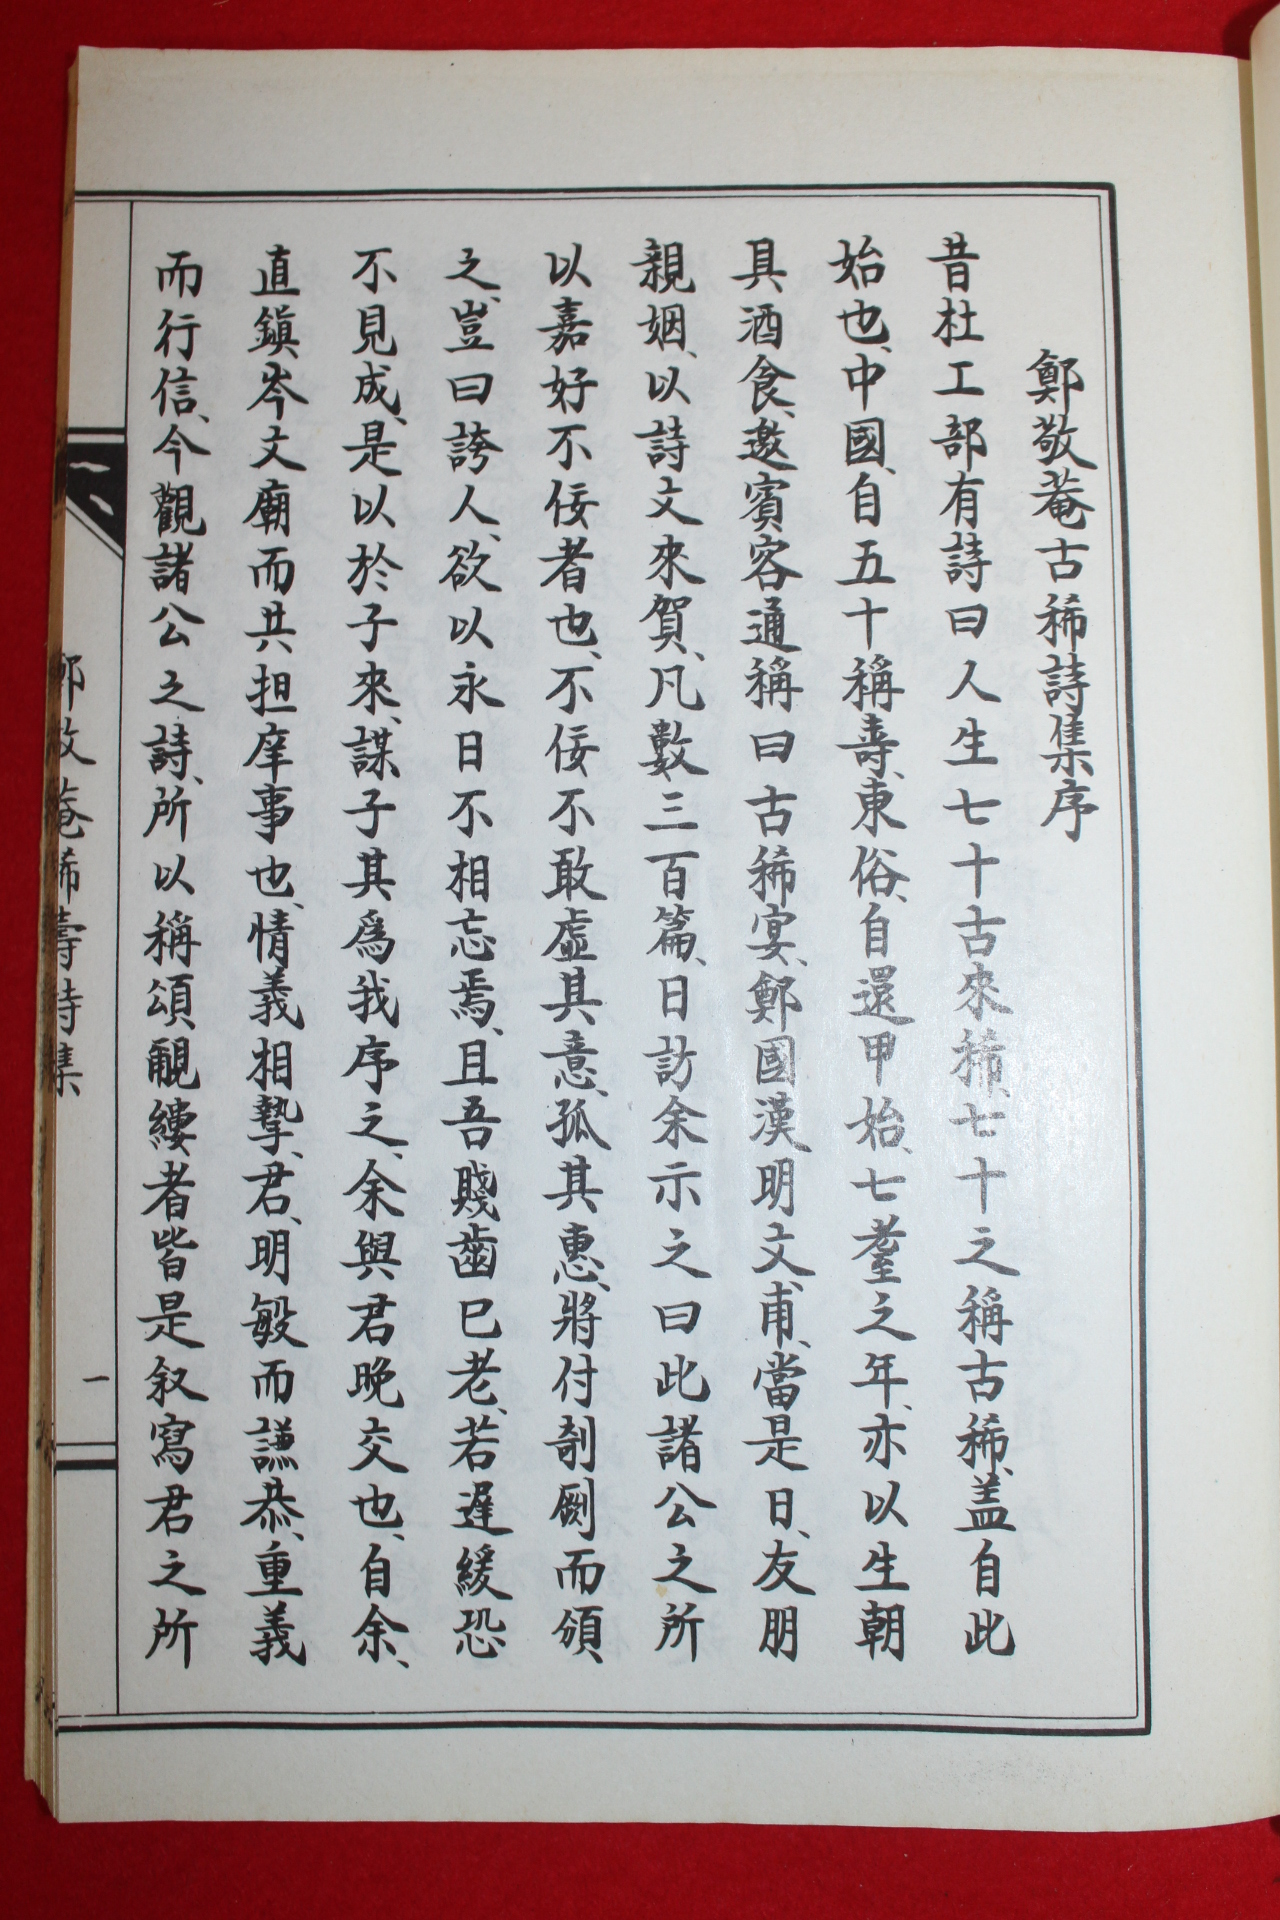 鄭敬菴古稀詩集序
昔杜工部有詩曰人生七十古來稀、七十之稱古稀、盖自此
始也、中國、自五十稱壽、東俗、自還甲始、七耋之年、亦以生朝
具酒食、邀賓客通稱曰古稀宴、鄭國漢明文、甫、當是日、友朋
親姻、以詩文來賀、凡數三百篇、日訪余示之曰此諸公之所
以嘉好不佞者也、不佞不敢虛其意、孤其惠、將付剞劂而頒、
之、豈曰誇人、欲以永日不相忘焉、且吾賤齒已老、若遲緩恐、
不見成、是以於子來、謀子其爲我序之、余與君晩交也、自余、
直鎭岑文廟而共担庠事也、情義相摯、君、明敏而謙恭、重義
而行信、今觀諸公之詩、所以稱頌覼縷者皆是叙寫君之所
鄭敬菴稀壽詩集
一